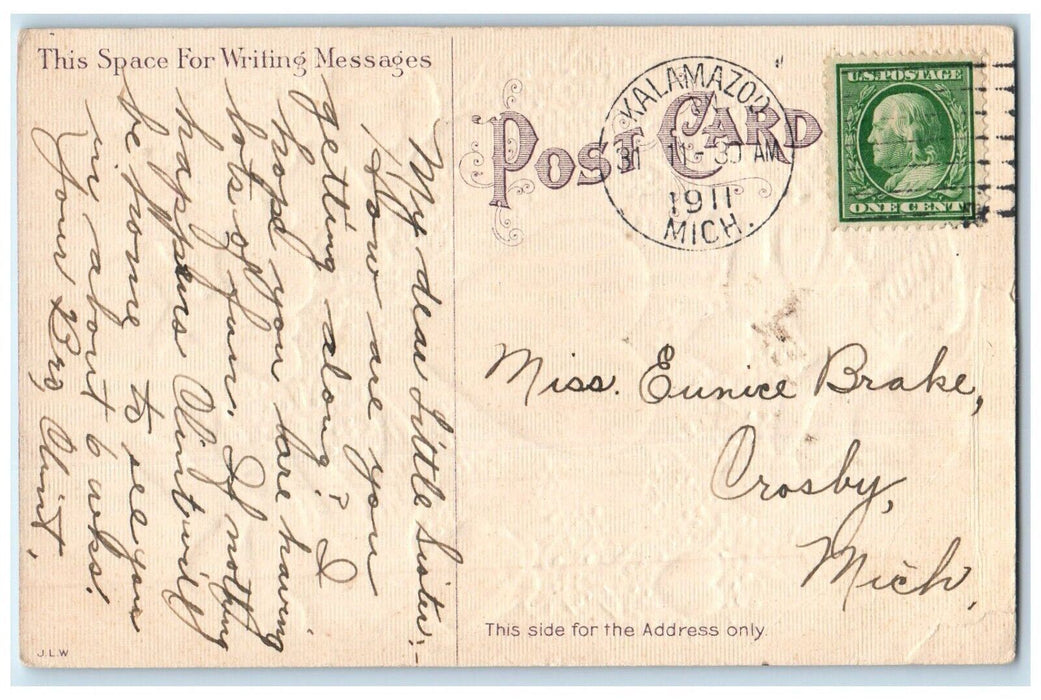 This Space For Writing Messages
My dear Little Sister:-
How are you
getting along? I
hope you are having
lots of fun. If nothing
happens Clint will
be home to see you
in about 6 wks.
Your Bro Clint.
POST CARD
KALAMAZOO
31 11-30 AM
1911
MICH.
U.S. POSTAGE
ONE CENT
Miss. Eunice Brake,
Crosby,
Mich.
This side for the Address only.
J.L.W